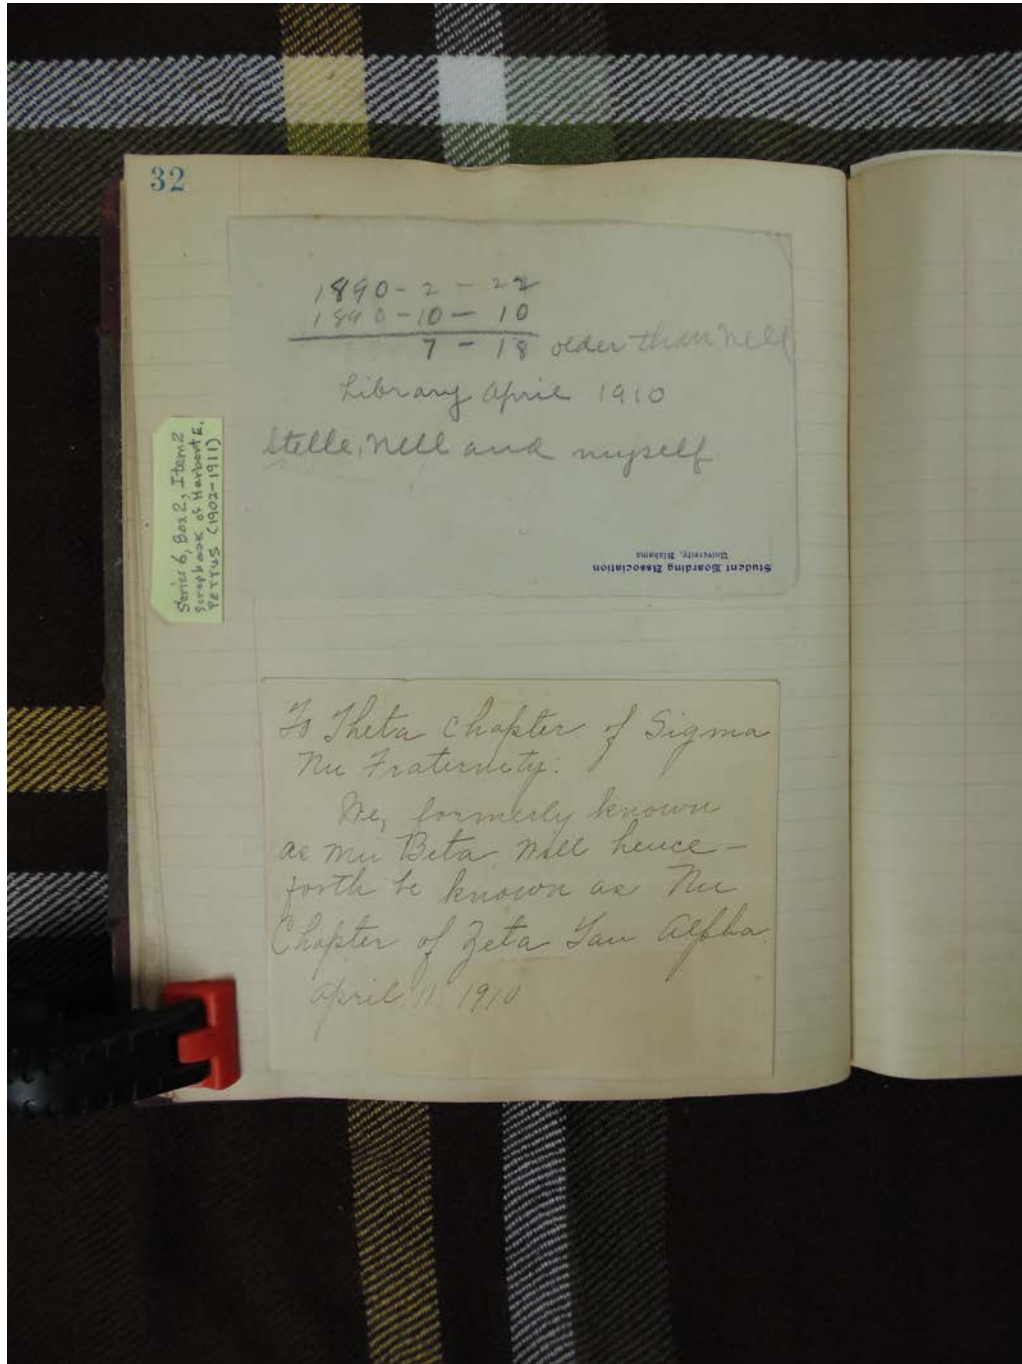 32
1890-2-22
1890-10-10
7-18 older than Nell
Library April 1910
Stelle, Nell and myself
Student Boarding Association
University, Alabama
Series 6, Box 2, Item 2
Scrapbook of Harbert E.
Pettus (1902-1911)
To Theta Chapter of Sigma
Nu Fraternity.
We, formerly known
as Mu Beta will hence-
forth be known as Nu
Chapter of Zeta Tau Alpha
April 11 1910